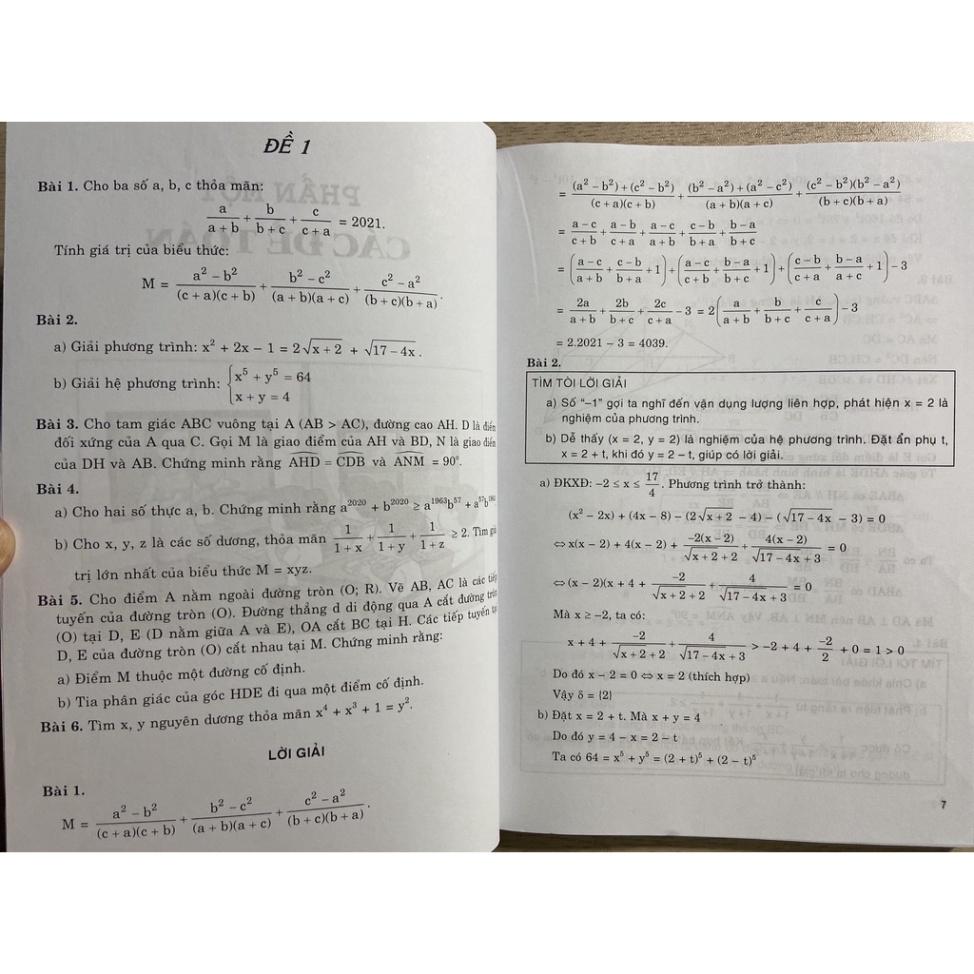 ĐỀ 1
Bài 1. Cho ba số a, b, c thỏa mãn:
a/(a + b) + b/(b + c) + c/(c + a) = 2021.
Tính giá trị của biểu thức:
M = (a² – b²)/((c + a)(c + b)) + (b² – c²)/((a + b)(a + c)) + (c² – a²)/((b + c)(b + a)).
Bài 2.
a) Giải phương trình: x² + 2x – 1 = 2√(x + 2) + √(17 – 4x).
b) Giải hệ phương trình: { x⁵ + y⁵ = 64
x + y = 4
Bài 3. Cho tam giác ABC vuông tại A (AB > AC), đường cao AH. D là điểm
đối xứng của A qua C. Gọi M là giao điểm của AH và BD, N là giao điểm
của DH và AB. Chứng minh rằng AHD = CDB và ANM = 90°.
Bài 4.
a) Cho hai số thực a, b. Chứng minh rằng a²⁰²⁰ + b²⁰²⁰ ≥ a¹⁹⁶³b⁵⁷ + a⁵⁷b
b) Cho x, y, z là các số dương, thỏa mãn 1/(1 + x) + 1/(1 + y) + 1/(1 + z) ≥ 2. Tìm
trị lớn nhất của biểu thức M = xyz.
Bài 5. Cho điểm A nằm ngoài đường tròn (O; R). Vẽ AB, AC là các tiếp
tuyến của đường tròn (O). Đường thẳng d di động qua A cắt đường tròn
(O) tại D, E (D nằm giữa A và E), OA cắt BC tại H. Các tiếp tuyến
D, E của đường tròn (O) cắt nhau tại M. Chứng minh rằng:
a) Điểm M thuộc một đường cố định.
b) Tia phân giác của góc HDE đi qua một điểm cố định.
Bài 6. Tìm x, y nguyên dương thỏa mãn x⁴ + x³ + 1 = y².
LỜI GIẢI
Bài 1.
M = (a² – b²)/((c + a)(c + b)) + (b² – c²)/((a + b)(a + c)) + (c² – a²)/((b + c)(b + a)).
= ((a² – b²) + (c² – b²))/((c + a)(c + b)) + ((b² – a²) + (a² – c²))/((a + b)(a + c)) + ((c² – b²)(b² – a²))/((b + c)(b + a))
= (a – c)/(c + b) + (a – b)/(c + a) + (a – c)/(a + b) + (c – b)/(b + a) + (b – a)/(b + c)
= ((a – c)/(a + b) + (c – b)/(b + a) + 1) + ((a – c)/(c + b) + (b – a)/(b + c) + 1) + ((c – b)/(c + a) + (b – a)/(a + c) + 1) – 3
= 2a/(a + b) + 2b/(b + c) + 2c/(c + a) – 3 = 2(a/(a + b) + b/(b + c) + c/(c + a)) – 3
= 2.2021 – 3 = 4039.
Bài 2.
TÌM TÒI LỜI GIẢI
a) Số “–1” gợi ta nghĩ đến vận dụng lượng liên hợp, phát hiện x = 2 là
nghiệm của phương trình.
b) Dễ thấy (x = 2, y = 2) là nghiệm của hệ phương trình. Đặt ẩn phụ t,
x = 2 + t, khi đó y = 2 – t, giúp có lời giải.
a) ĐKXĐ: –2 ≤ x ≤ 17/4. Phương trình trở thành:
(x² – 2x) + (4x – 8) – (2√(x + 2) – 4) – (√(17 – 4x) – 3) = 0
⇔ x(x – 2) + 4(x – 2) + –2(x – 2)/(√(x + 2) + 2) + 4(x – 2)/(√(17 – 4x) + 3) = 0
⇔ (x – 2)(x + 4 + –2/(√(x + 2) + 2) + 4/(√(17 – 4x) + 3) = 0
Mà x ≥ –2, ta có:
x + 4 + –2/(√(x + 2) + 2) + 4/(√(17 – 4x) + 3) > –2 + 4 + –2/2 + 0 = 1 > 0
Do đó x – 2 = 0 ⇔ x = 2 (thích hợp)
Vậy δ = {2}
b) Đặt x = 2 + t. Mà x + y = 4
Do đó y = 4 – x = 2 – t
Ta có 64 = x⁵ + y⁵ = (2 + t)⁵ + (2 – t)⁵
7